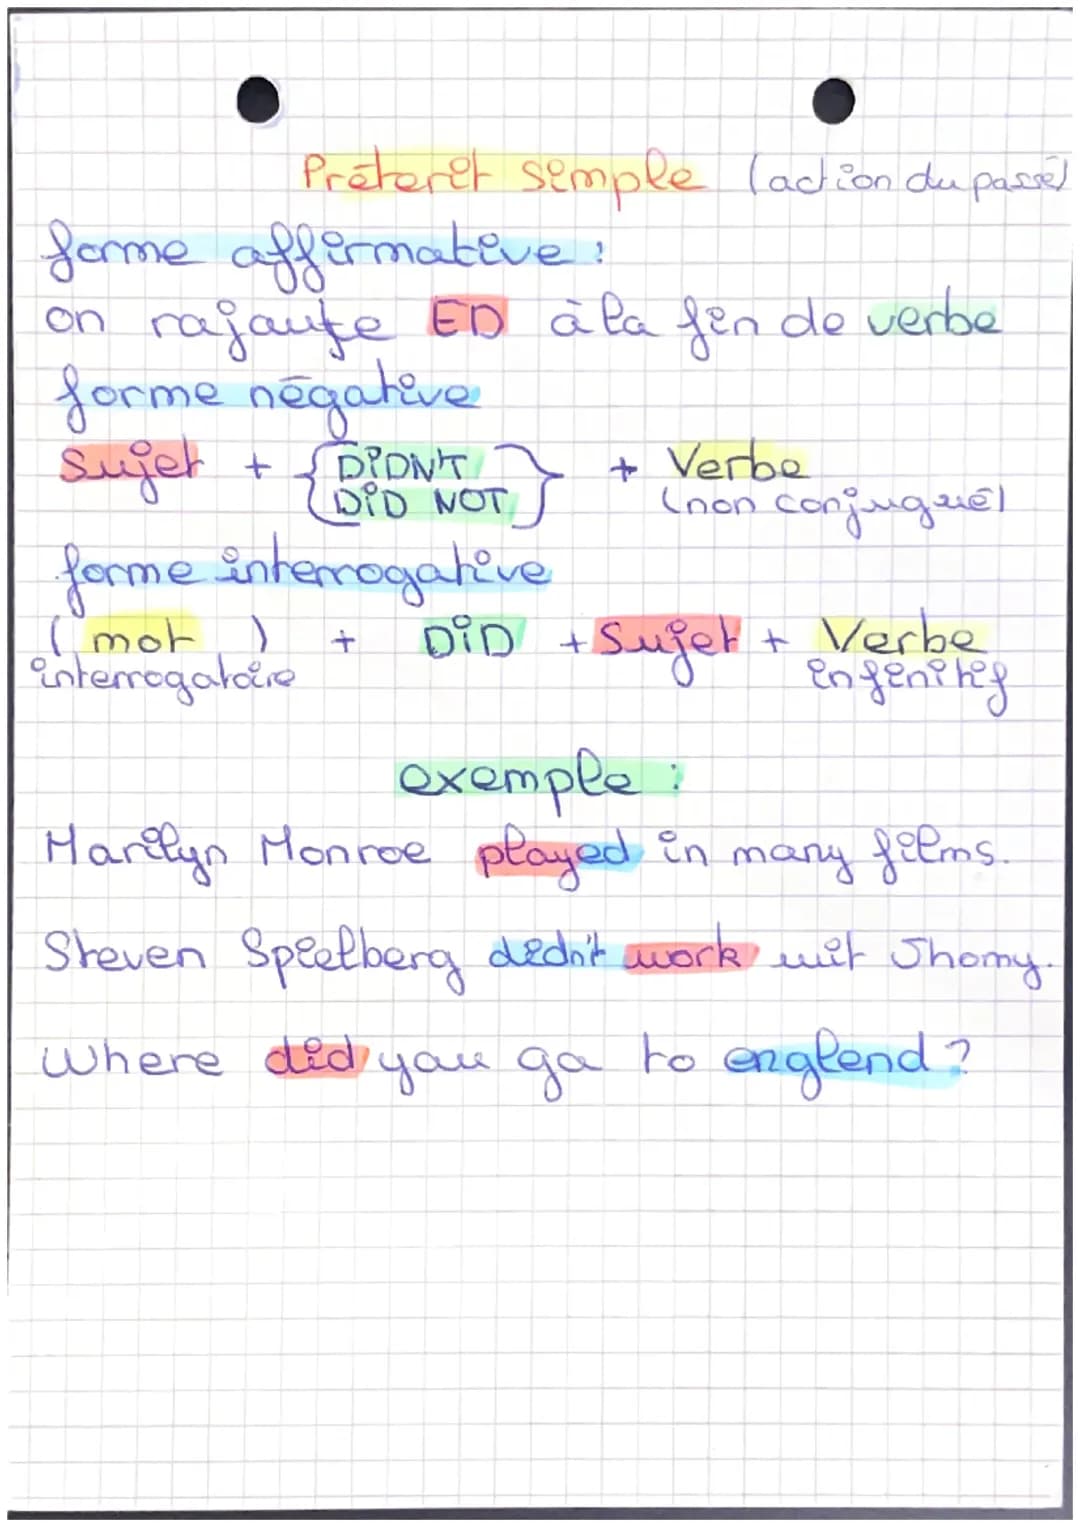 Préterit simple (action du passé)
forme affirmative :
on rajoute ED à la fin de verbe
forme négative
Sujet + { DIDN'T } + Verbe
DID NOT (non conjugué)
forme interrogative
( mot ) + DID + Sujet + Verbe
interrogatoire infinitif
exemple :
Marilyn Monroe played in many films.
Steven Spielberg didn't work wit Jhomy.
Where did you go to englend ?